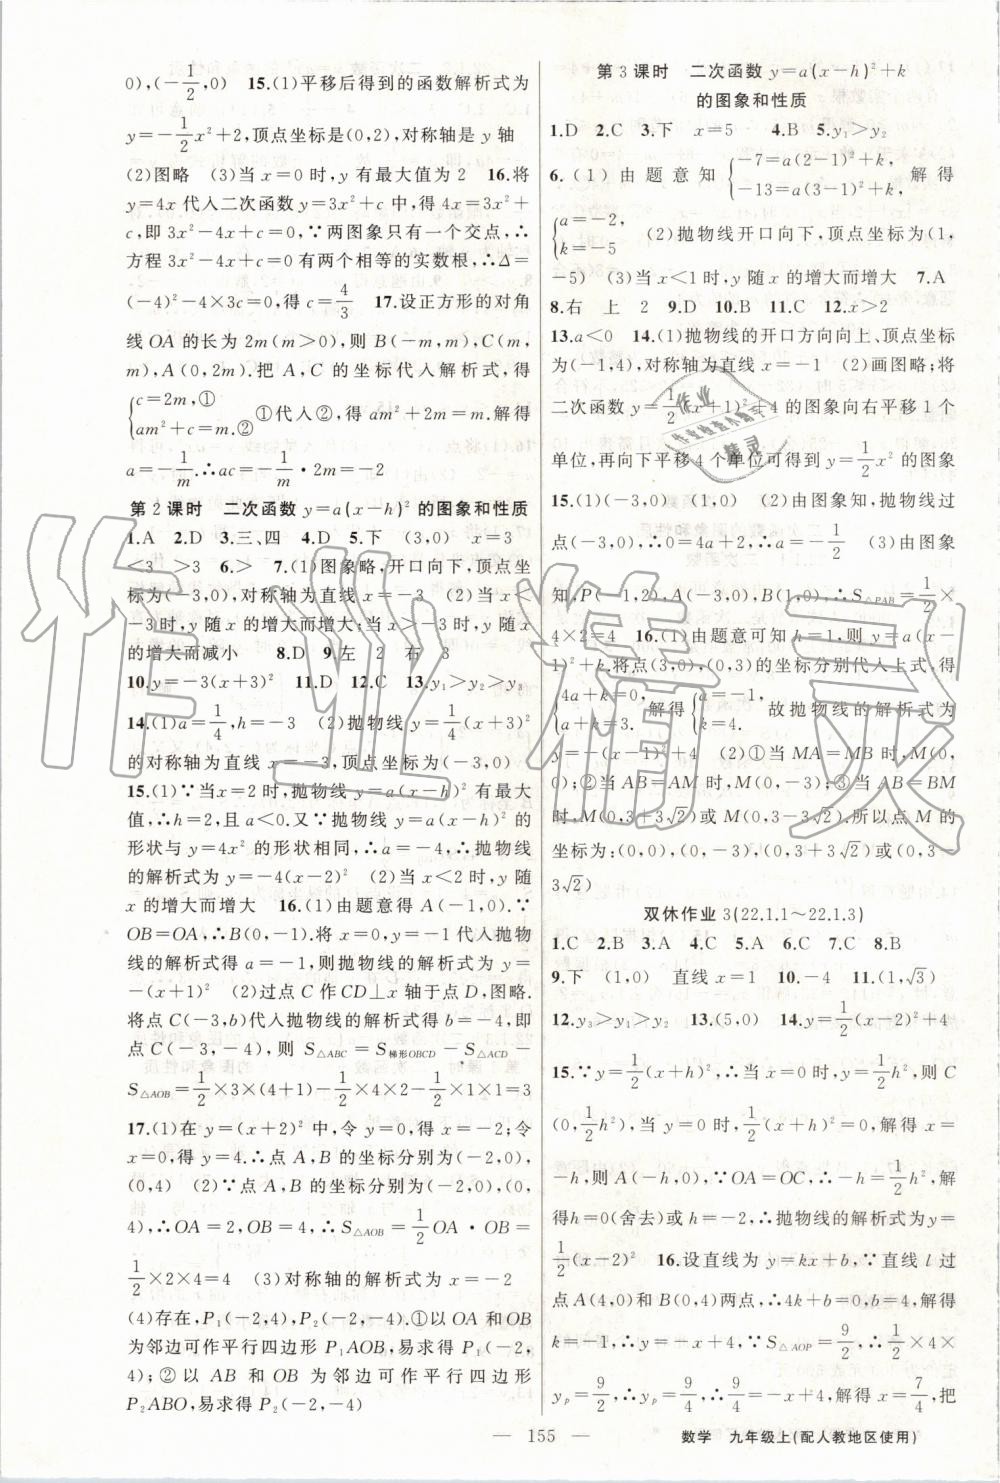 0),(−1/2,0)　15.(1)平移后得到的函数解析式为
y=−1/2x²+2,顶点坐标是(0,2),对称轴是 y 轴
(2)图略　(3)当 x=0 时,y 有最大值为 2　16.将
y=4x 代入二次函数 y=3x²+c 中,得 4x=3x²+
c,即 3x²−4x+c=0,∵两图象只有一个交点,∴
方程 3x²−4x+c=0 有两个相等的实数根,∴Δ=
(−4)²−4×3c=0,得 c=4/3　17.设正方形的对角
线 OA 的长为 2m(m>0),则 B(−m,m),C(m,
m),A(0,2m).把 A,C 的坐标代入解析式,得
{c=2m,①
am²+c=m.②　①代入②,得 am²+2m=m.解得
a=−1/m.∴ac=−1/m·2m=−2
第 2 课时　二次函数 y=a(x−h)²的图象和性质
1.A　2.D　3.三、四　4.D　5.下　(3,0)　x=3
<3　>3　6.>　7.(1)图象略,开口向下,顶点坐
标为(−3,0),对称轴为直线 x=−3　(2)当 x<
−3时,y 随 x 的增大而增大;当 x>−3 时,y 随 x
的增大而减小　8.D　9.左　2　右　3
10.y=−3(x+3)²　11.D　12.C　13.y₁>y₂>y₃
14.(1)a=1/4,h=−3　(2)抛物线 y=1/4(x+3)²
的对称轴为直线 x=−3,顶点坐标为(−3,0)
15.(1)∵当 x=2 时,抛物线 y=a(x−h)²有最大
值,∴h=2,且 a<0.又∵抛物线 y=a(x−h)²的
形状与 y=4x²的形状相同,∴a=−4,∴抛物线
的解析式为 y=−4(x−2)²　(2)当 x<2 时,y 随
x 的增大而增大　16.(1)由题意得 A(−1,0).∵
OB=OA,∴B(0,−1).将 x=0,y=−1 代入抛物
线的解析式得 a=−1,则抛物线的解析式为 y=
−(x+1)²　(2)过点 C 作CD⊥x 轴于点 D,图略.
将点 C(−3,b)代入抛物线的解析式得 b=−4,即
点 C(−3,−4),则 S△ABC=S梯形OBCD−S△ACD−
S△AOB=1/2×3×(4+1)−1/2×4×2−1/2×1×1=3
17.(1)在 y=(x+2)²中,令 y=0,得 x=−2;令
x=0,得 y=4.∴点 A、B 的坐标分别为(−2,0),
(0,4)　(2)∵点 A,B 的坐标分别为(−2,0),(0,
4),∴OA=2,OB=4,∴S△AOB=1/2OA·OB=
1/2×2×4=4　(3)对称轴的解析式为 x=−2
(4)存在,P₁(−2,4),P₂(−2,−4).①以 OA 和OB
为邻边可作平行四边形 P₁AOB,易求得 P₁(−2,
4);②以 AB 和 OB 为邻边可作平行四边形
P₂ABO,易求得 P₂(−2,−4)
第 3 课时　二次函数 y=a(x−h)²+k
的图象和性质
1.D　2.C　3.下　x=5　4.B　5.y₁>y₂
6.(1)由题意知{−7=a(2−1)²+k,
−13=a(3−1)²+k,解得
{a=−2,
k=−5.　(2)抛物线开口向下,顶点坐标为(1,
−5)　(3)当 x<1 时,y 随 x 的增大而增大　7.A
8.右　上　2　9.D　10.B　11.C　12.x>2
13.a<0　14.(1)抛物线的开口方向向上、顶点坐标
为(−1,4),对称轴为直线 x=−1　(2)画图略;将
二次函数 y=1/2(x+1)²+4 的图象向右平移 1 个
单位,再向下平移 4 个单位可得到 y=1/2x²的图象
15.(1)(−3,0)　(1,0)　(2)由图象知,抛物线过
点(−3,0),∴0=4a+2,∴a=−1/2　(3)由图象
知,P(−1,2),A(−3,0),B(1,0),∴S△PAB=1/2×
4×2=4　16.(1)由题意可知 h=1,则 y=a(x−
1)²+k.将点(3,0),(0,3)的坐标分别代入上式,得
{4a+k=0,
a+k=3.　解得{a=−1,
k=4.　故抛物线的解析式为
y=−(x−1)²+4　(2)①当 MA=MB 时,M(0,
0);②当 AB=AM 时,M(0,−3);③当 AB=BM
时,M(0,3+3√2)或 M(0,3−3√2).所以点 M 的
坐标为:(0,0),(0,−3),(0,3+3√2)或(0,3−
3√2)
双休作业 3(22.1.1～22.1.3)
1.C　2.B　3.A　4.C　5.A　6.C　7.C　8.B
9.下　(1,0)　直线 x=1　10.−4　11.(1,√3)
12.y₃>y₁>y₂　13.(5,0)　14.y=1/2(x−2)²+4
15.∵y=1/2(x+h)²,∴当 x=0 时,y=1/2h²,则 C
(0,1/2h²),当 y=0 时,1/2(x+h)²=0,解得 x=
−h,则 A(−h,0),∵OA=OC,∴−h=1/2h²,解
得 h=0(舍去)或 h=−2,∴抛物线的解析式为 y=
1/2(x−2)²　16.设直线为 y=kx+b,∵直线 l 过
点 A(4,0)和 B(0,4)两点,∴4k+b=0,b=4,解得
k=−1,∴y=−x+4,∵S△AOP=9/2,∴1/2×4×
yₚ=9/2,∴yₚ=9/4,∴9/4=−x+4,解得 x=7/4,把
— 155 —　数学　九年级上(配人教地区使用)
作业精灵
作业
精灵